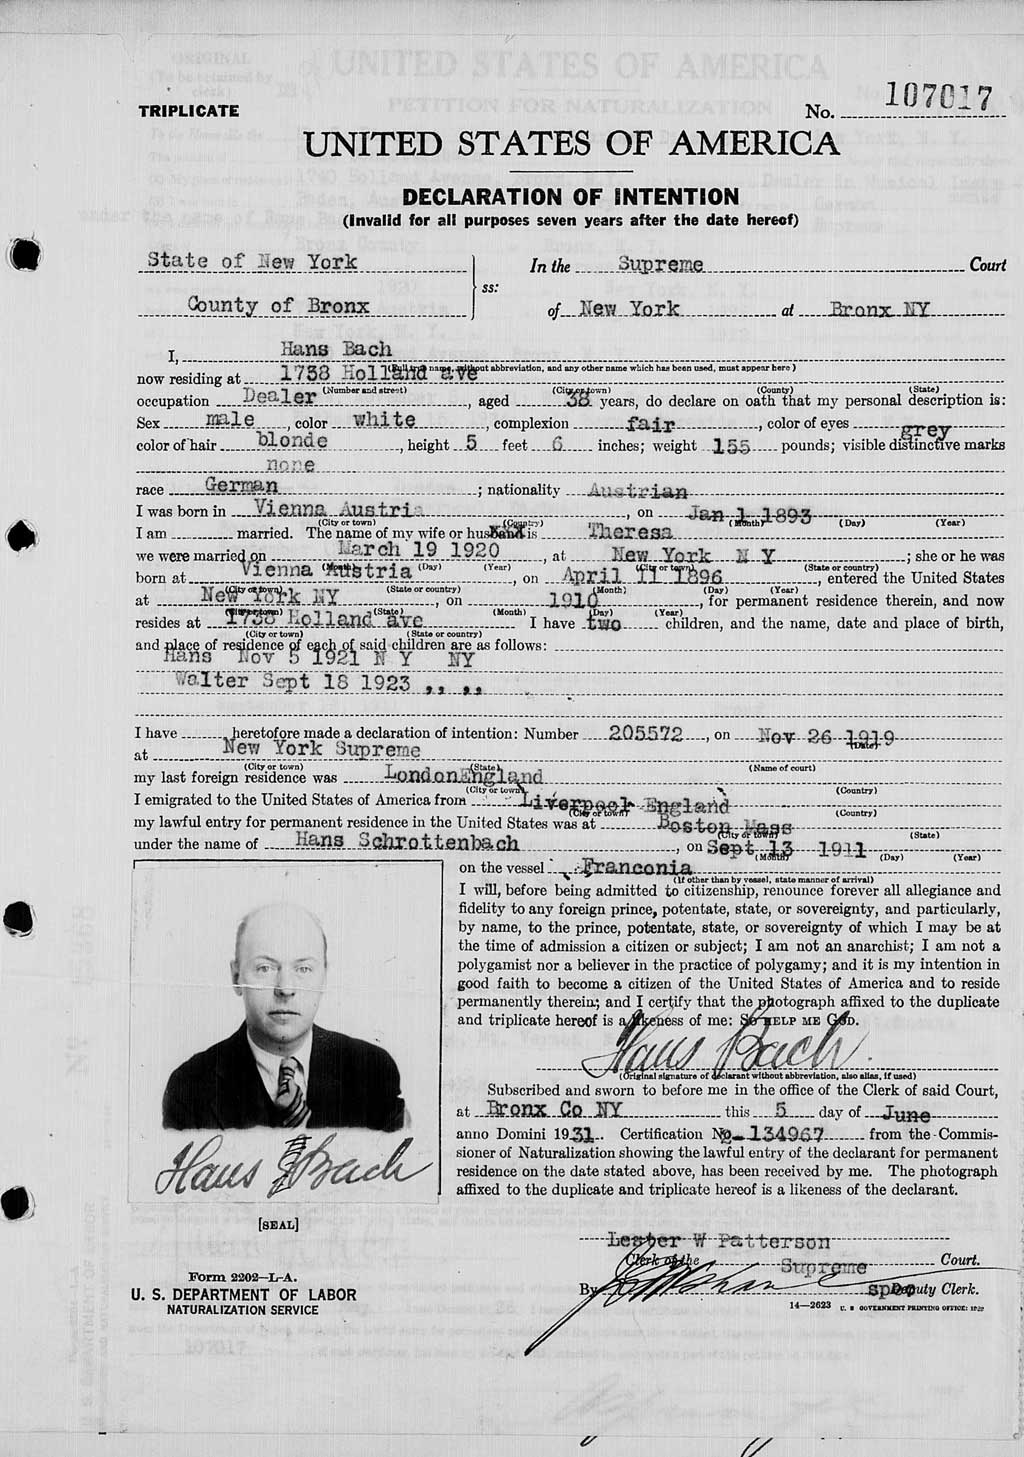 TRIPLICATE
No. 107017
UNITED STATES OF AMERICA
DECLARATION OF INTENTION
(Invalid for all purposes seven years after the date hereof)
State of New York
County of Bronx
ss:
In the Supreme Court
of New York at Bronx NY
I, Hans Bach
(Full true name, without abbreviation, and any other name which has been used, must appear here)
now residing at 1738 Holland ave
(Number and street) (City or town) (County) (State)
occupation Dealer, aged 38 years, do declare on oath that my personal description is:
Sex male, color white, complexion fair, color of eyes grey
color of hair blonde, height 5 feet 6 inches; weight 155 pounds; visible distinctive marks
none
race German; nationality Austrian
I was born in Vienna Austria, on Jan 1 1893
(City or town) (Country) (Month) (Day) (Year)
I am married. The name of my wife or husband is Theresa
we were married on March 19 1920, at New York N Y; she or he was
(Month) (Day) (Year) (City or town) (State or country)
born at Vienna Austria, on April 11 1896, entered the United States
(City or town) (State or country) (Month) (Day) (Year)
at New York NY, on 1910, for permanent residence therein, and now
(City or town) (State) (Month) (Day) (Year)
resides at 1738 Holland ave I have two children, and the name, date and place of birth,
(City or town) (State or country)
and place of residence of each of said children are as follows:
Hans Nov 5 1921 N Y NY
Walter Sept 18 1923 ,, ,,
I have heretofore made a declaration of intention: Number 205572, on Nov 26 1919
(Date)
at New York Supreme
(City or town) (State) (Name of court)
my last foreign residence was London England
(City or town) (Country)
I emigrated to the United States of America from Liverpool England
(City or town) (Country)
my lawful entry for permanent residence in the United States was at Boston Mass
(City or town) (State)
under the name of Hans Schrottenbach, on Sept 13 1911
(Month) (Day) (Year)
on the vessel Franconia
(If other than by vessel, state manner of arrival)
I will, before being admitted to citizenship, renounce forever all allegiance and
fidelity to any foreign prince, potentate, state, or sovereignty, and particularly,
by name, to the prince, potentate, state, or sovereignty of which I may be at
the time of admission a citizen or subject; I am not an anarchist; I am not a
polygamist nor a believer in the practice of polygamy; and it is my intention in
good faith to become a citizen of the United States of America and to reside
permanently therein; and I certify that the photograph affixed to the duplicate
and triplicate hereof is a likeness of me: SO HELP ME GOD.
Hans Bach
(Original signature of declarant without abbreviation, also alias, if used)
Subscribed and sworn to before me in the office of the Clerk of said Court,
at Bronx Co NY this 5 day of June
anno Domini 1931. Certification No 134967 from the Commis-
sioner of Naturalization showing the lawful entry of the declarant for permanent
residence on the date stated above, has been received by me. The photograph
affixed to the duplicate and triplicate hereof is a likeness of the declarant.
Hans Bach
[SEAL]
Lester W Patterson
Clerk of the Supreme Court.
By spec Deputy Clerk.
Form 2202—L-A.
U. S. DEPARTMENT OF LABOR
NATURALIZATION SERVICE
14—2623 U. S. GOVERNMENT PRINTING OFFICE: 1929